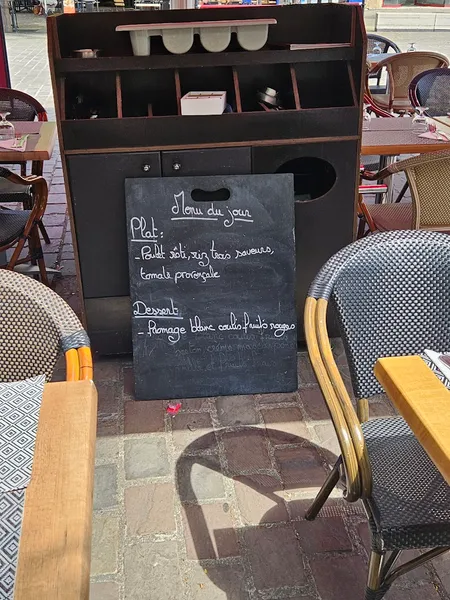 Menu du jour
Plat:
- Poulet rôti, riz trois saveurs,
tomate provençale
Dessert:
- Fromage blanc coulis fruits rouges